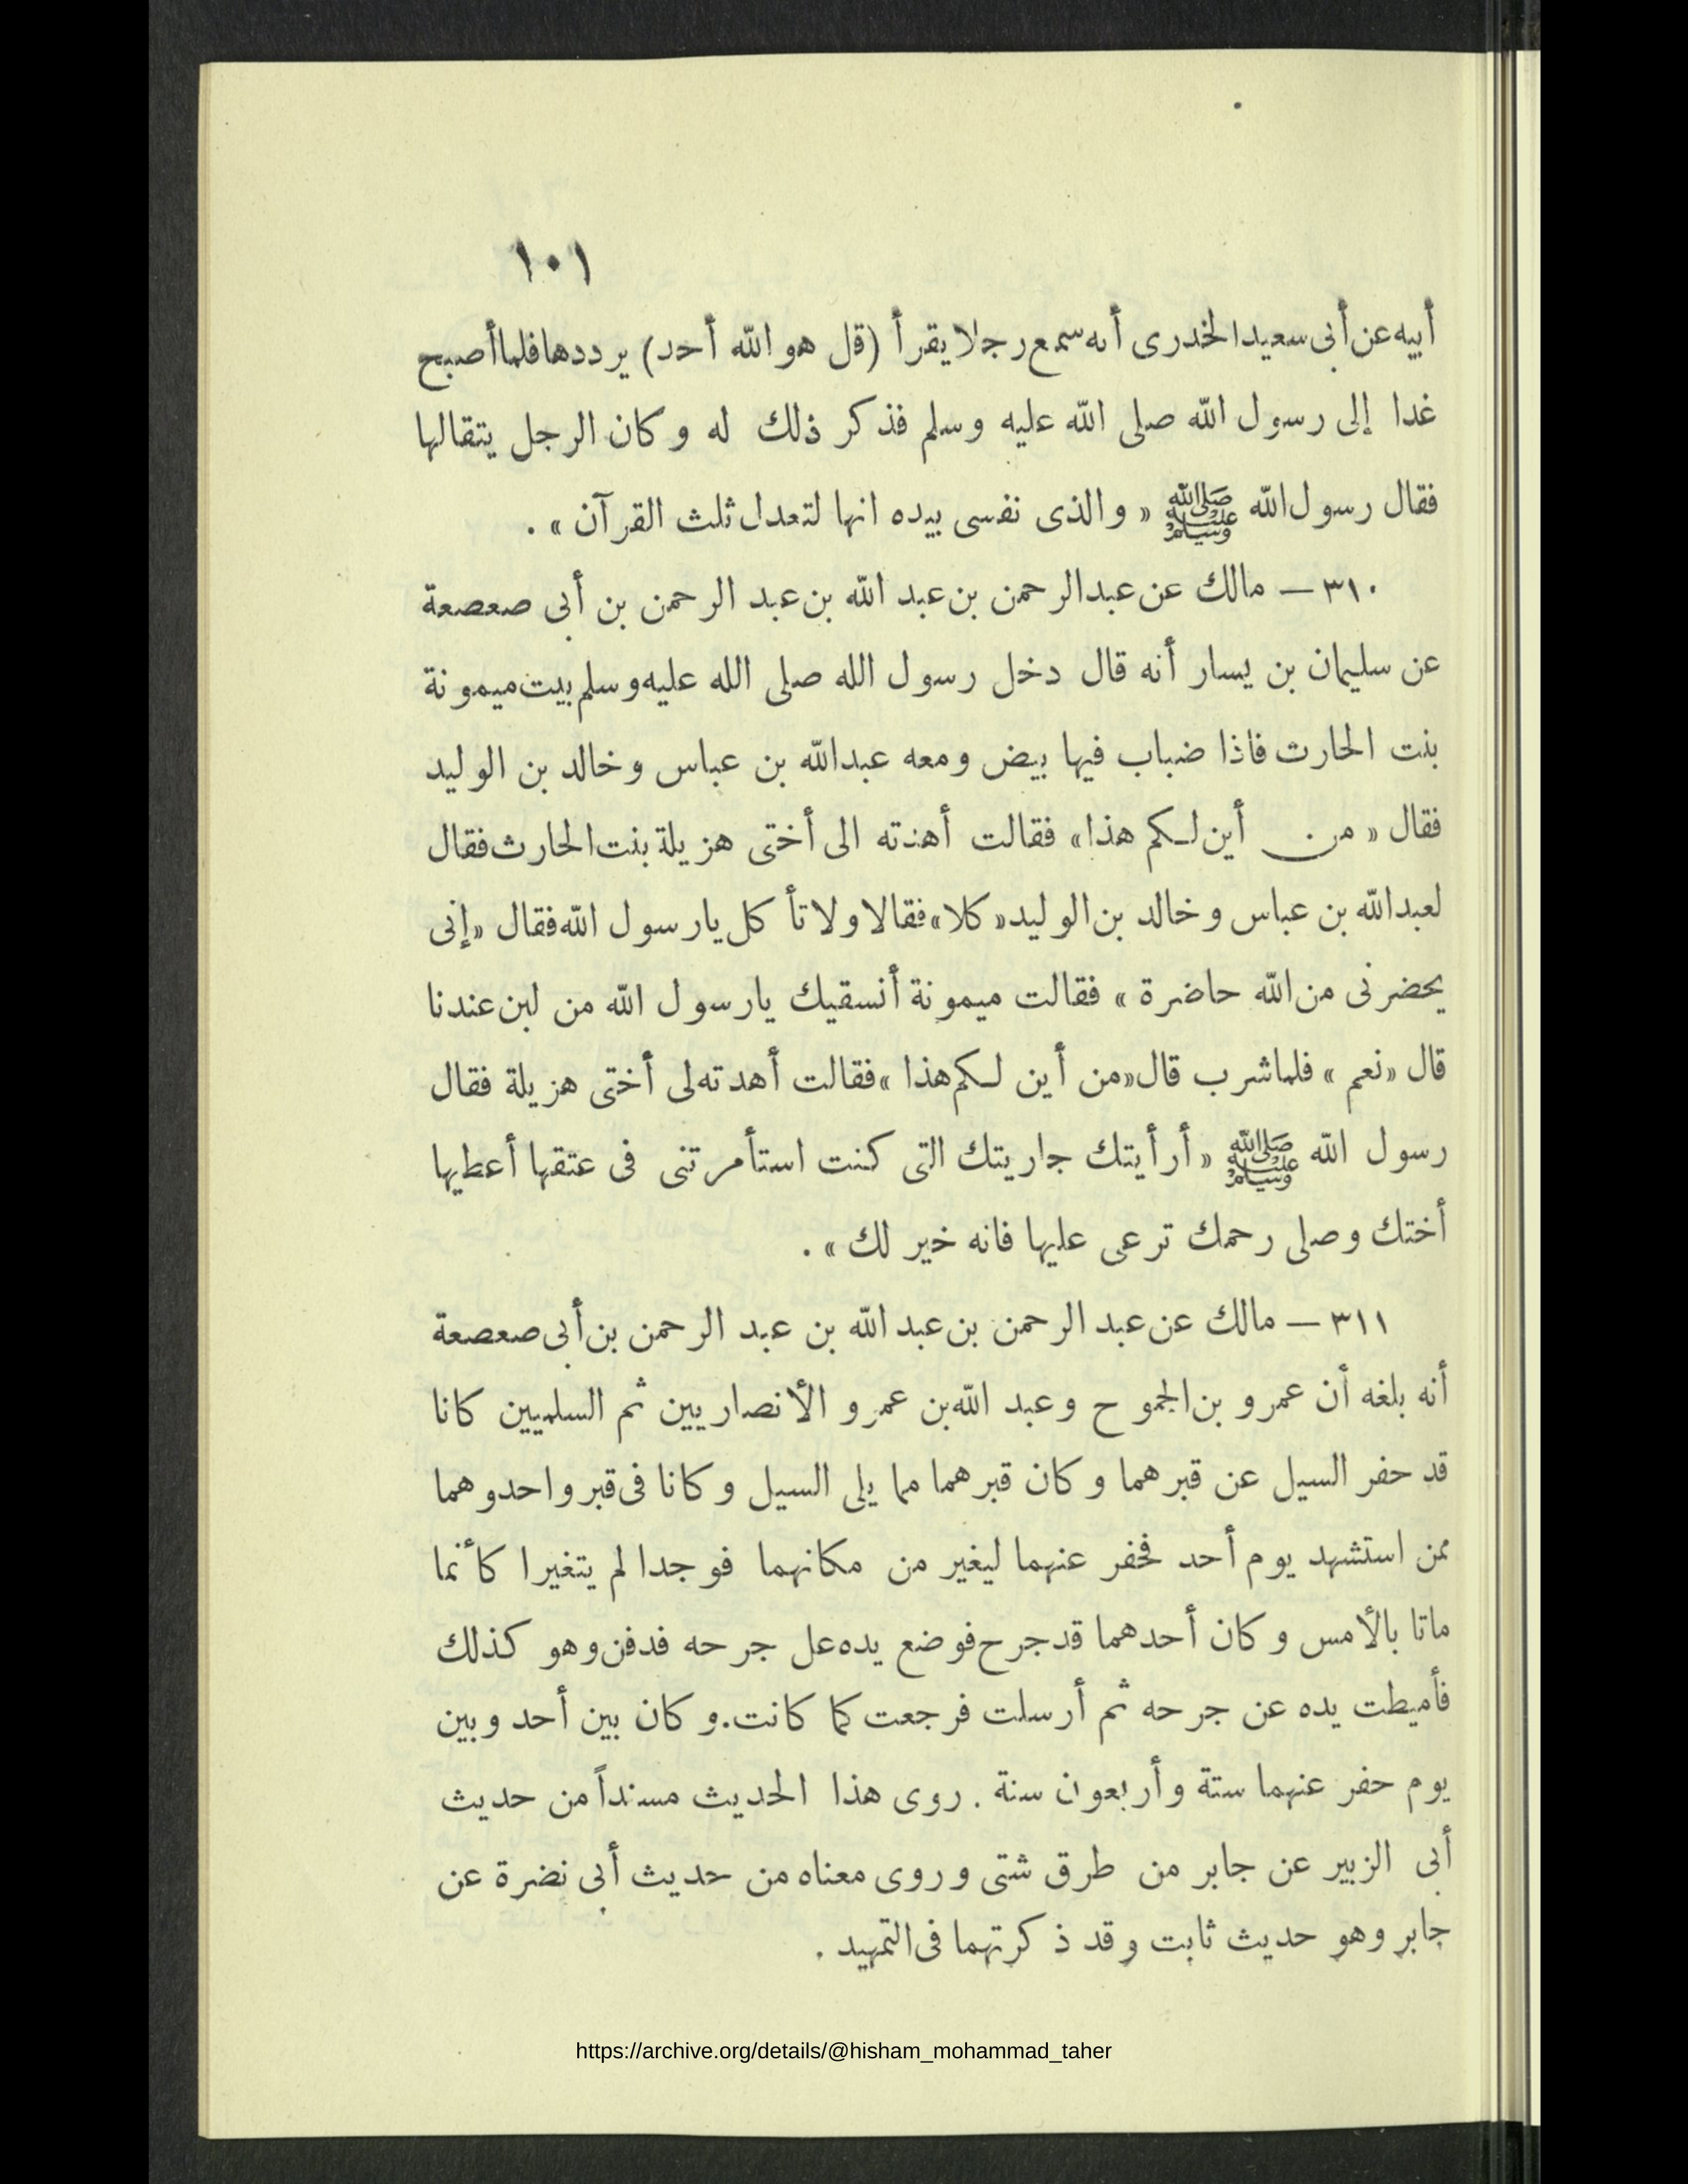 ١٠١
أبيه عن أبى سعيد الخدرى أنه سمع رجلا يقرأ (قل هو الله أحد) يرددها فلما أصبح
غدا إلى رسول الله صلى الله عليه وسلم فذكر ذلك له وكان الرجل يتقالها
فقال رسول الله ﷺ « والذى نفسى بيده انها لتعدل ثلث القرآن » .
٣١٠ — مالك عن عبد الرحمن بن عبد الله بن عبد الرحمن بن أبى صعصعة
عن سليمان بن يسار أنه قال دخل رسول الله صلى الله عليه وسلم بيت ميمونة
بنت الحارث فاذا ضباب فيها بيض ومعه عبد الله بن عباس وخالد بن الوليد
فقال « من أين لكم هذا» فقالت أهدته الى أختى هزيلة بنت الحارث فقال
لعبد الله بن عباس وخالد بن الوليد « كلا» فقالا ولا تأكل يارسول الله فقال «إنى
يحضرنى من الله حاضرة » فقالت ميمونة أنسقيك يارسول الله من لبن عندنا
قال «نعم » فلما شرب قال «من أين لكم هذا » فقالت أهدته لى أختى هزيلة فقال
رسول الله ﷺ « أرأيتك جاريتك التى كنت استأمرتنى فى عتقها أعطيها
أختك وصلى رحمك ترعى عليها فانه خير لك » .
٣١١ — مالك عن عبد الرحمن بن عبد الله بن عبد الرحمن بن أبى صعصعة
أنه بلغه أن عمرو بن الجموح وعبد الله بن عمرو الأنصاريين ثم السلميين كانا
قد حفر السيل عن قبرهما وكان قبرهما مما يلى السيل وكانا فى قبر واحد وهما
ممن استشهد يوم أحد فحفر عنهما ليغير من مكانهما فوجدا لم يتغيرا كأنما
ماتا بالأمس وكان أحدهما قد جرح فوضع يده عل جرحه فدفن وهو كذلك
فأميطت يده عن جرحه ثم أرسلت فرجعت كما كانت . وكان بين أحد وبين
يوم حفر عنهما ستة وأربعون سنة . روى هذا الحديث مسنداً من حديث
أبى الزبير عن جابر من طرق شتى وروى معناه من حديث أبى نضرة عن
جابر وهو حديث ثابت وقد ذكرتهما فى التمهيد .
https://archive.org/details/@hisham_mohammad_taher